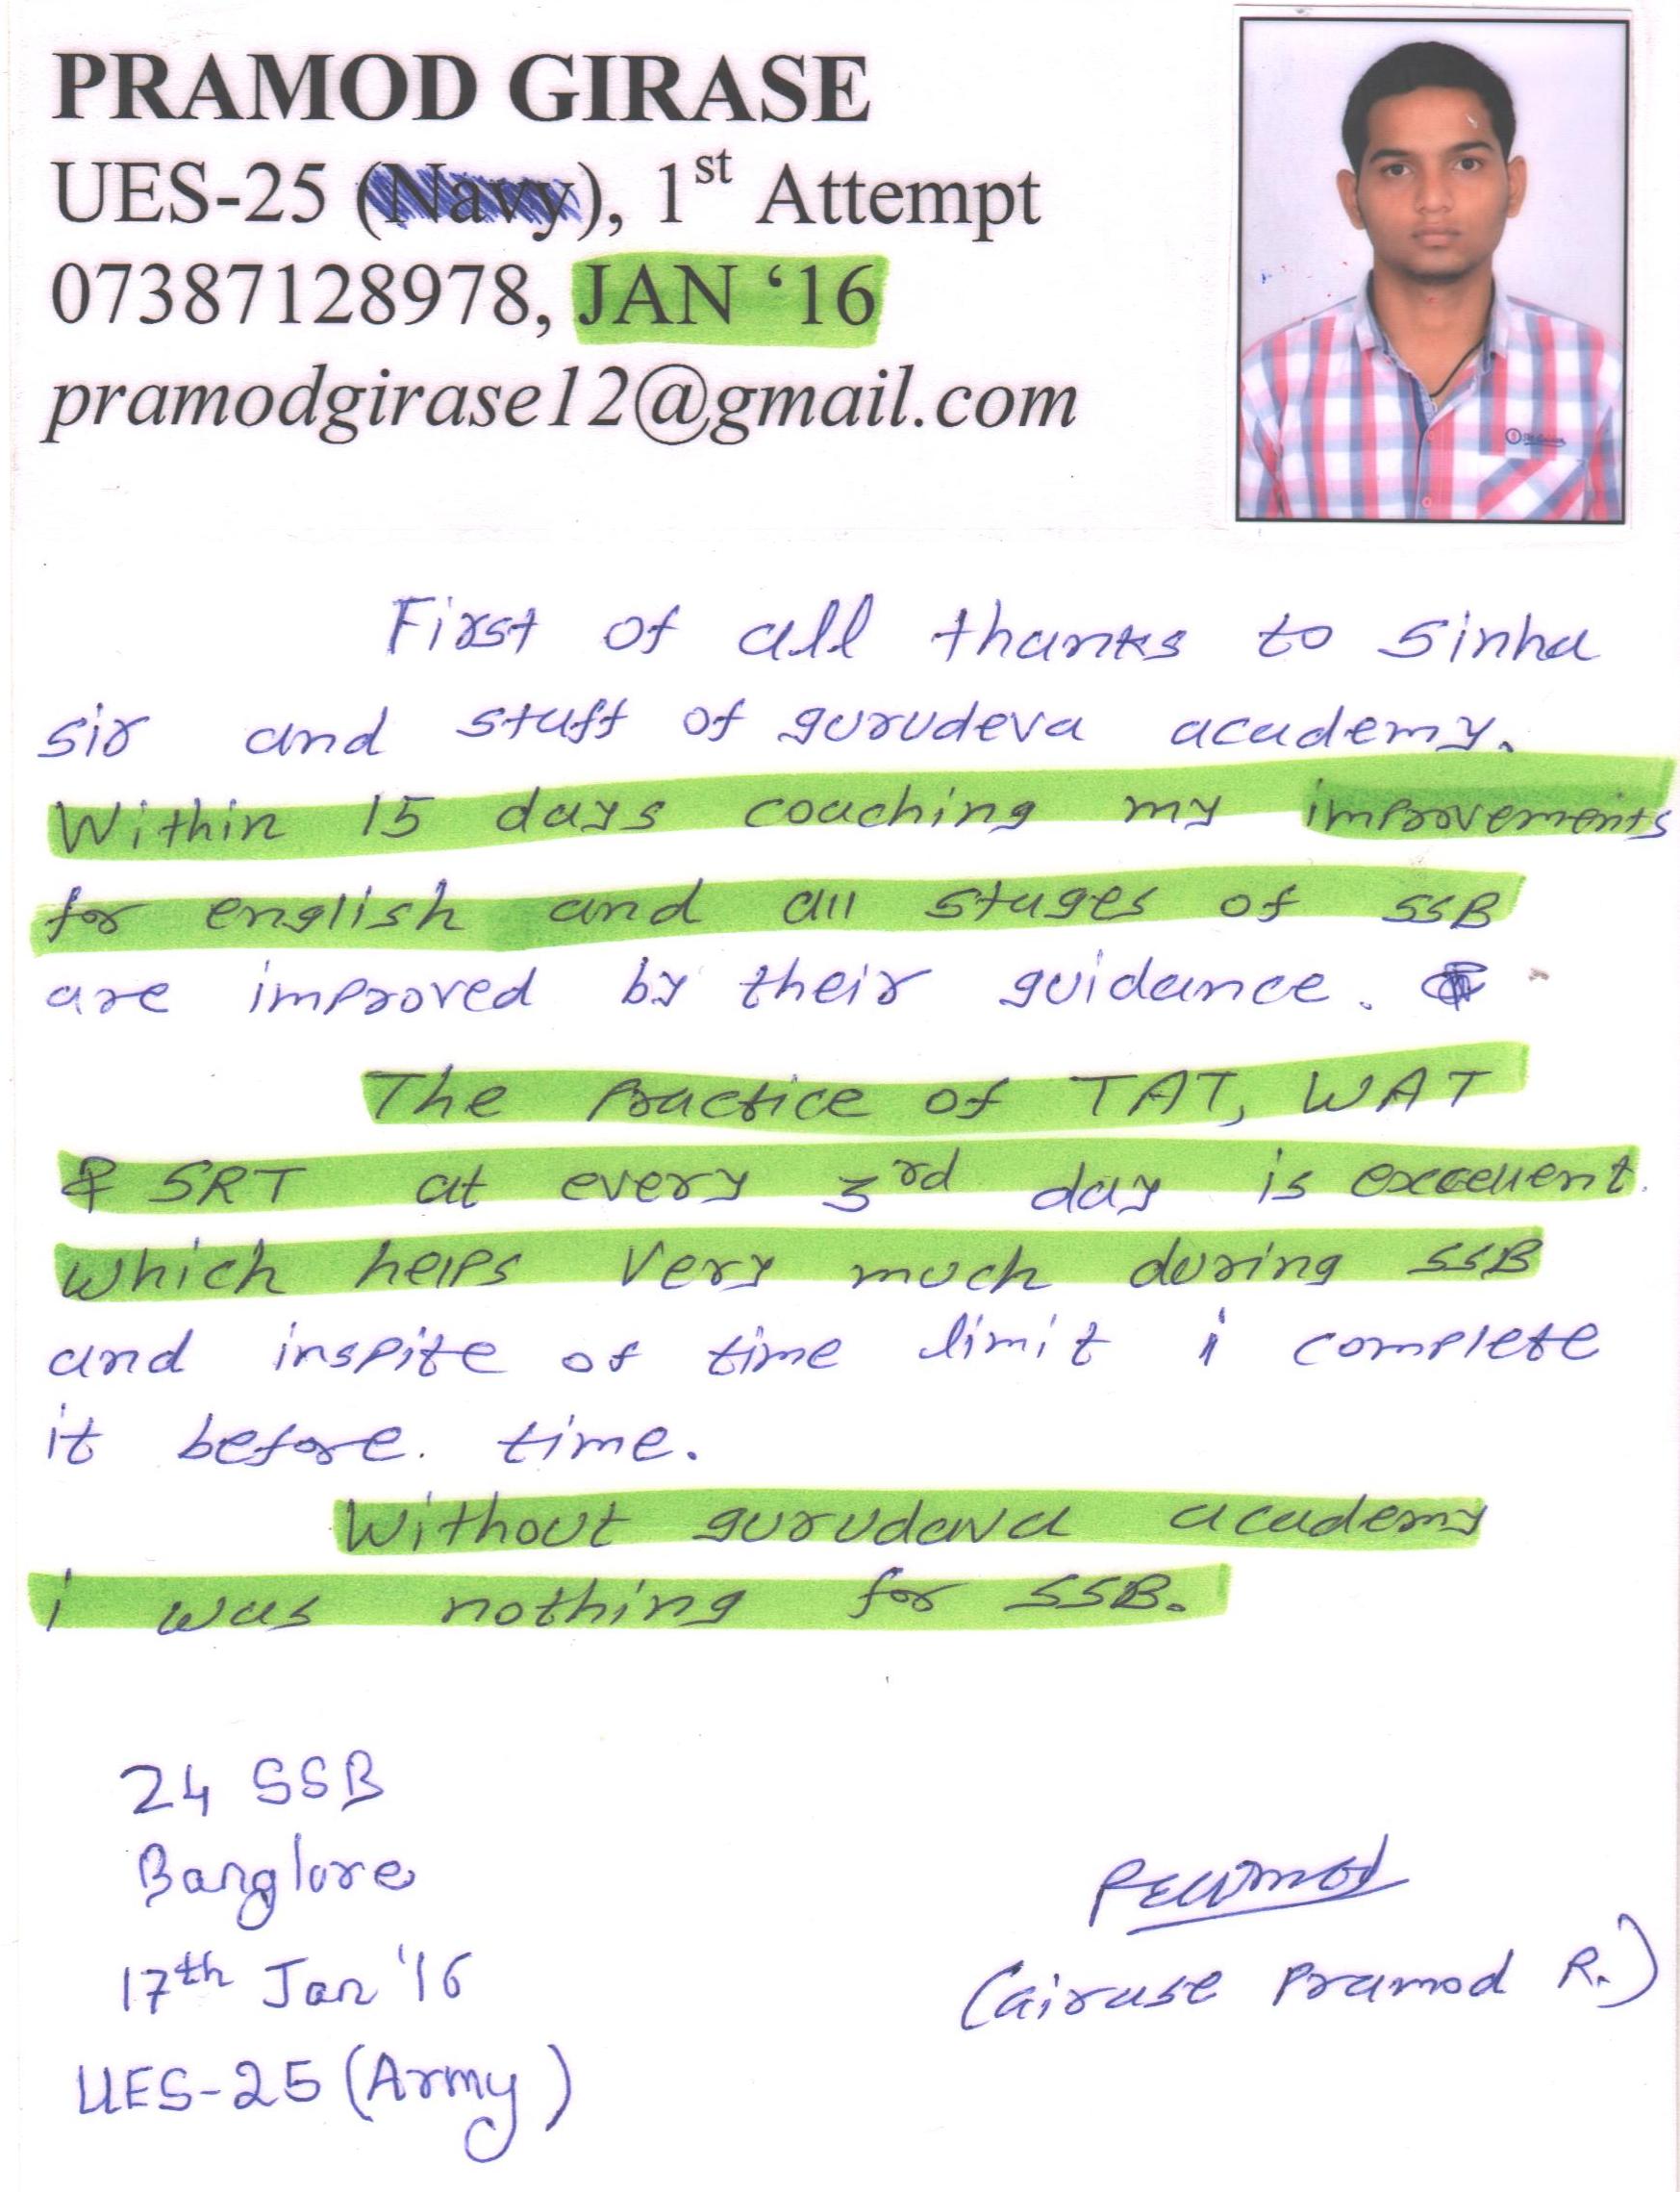 PRAMOD GIRASE
UES-25 (Navy), 1st Attempt
07387128978, JAN ‘16
pramodgirase12@gmail.com
First of all thanks to Sinha
sir and staff of gurudeva academy.
Within 15 days coaching my improvements
for english and all stages of SSB
are improved by their guidance.
The Practice of TAT, WAT
& SRT at every 3rd day is excellent.
which helps very much during SSB
and inspite of time limit i complete
it before. time.
Without gurudava academy
i was nothing for SSB.
24 SSB
Banglore
17th Jan '16
UES-25 (Army)
Pramod
(Girase Pramod R.)